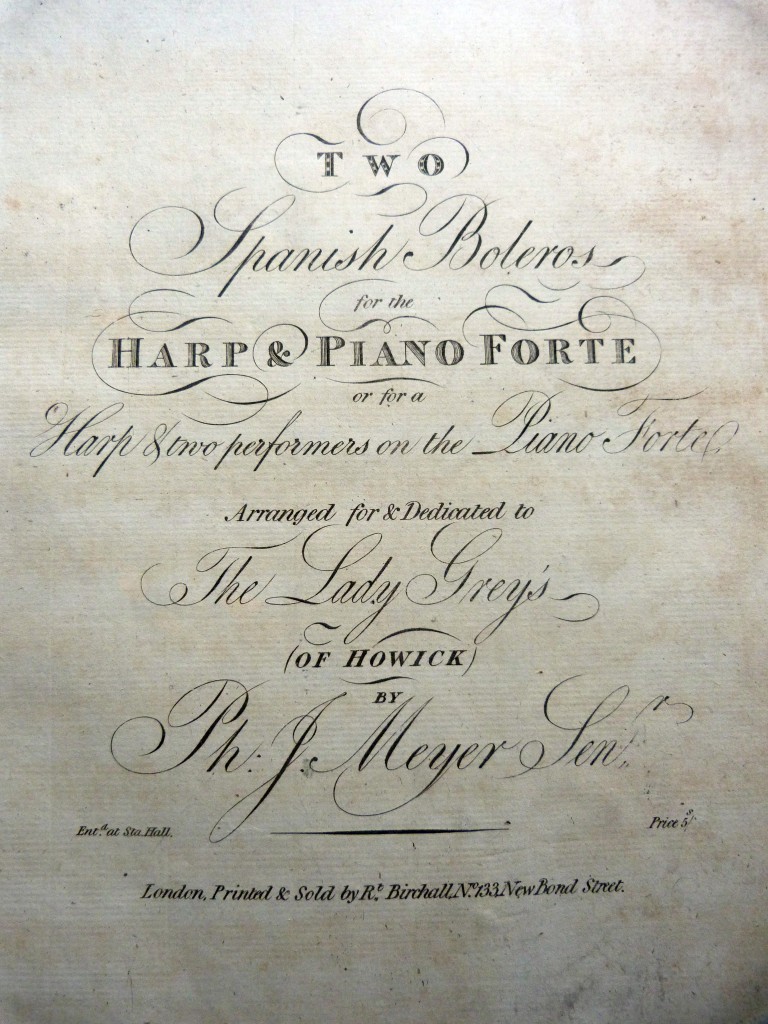 TWO
Spanish Boleros
for the
HARP & PIANO FORTE
or for a
Harp & two performers on the Piano Forte
Arranged for & Dedicated to
The Lady Grey's
(OF HOWICK)
BY
Ph. J. Meyer Senr.
Entd. at Sta. Hall.
Price 5s/.
London, Printed & Sold by Rt. Birchall, No. 133, New Bond Street.